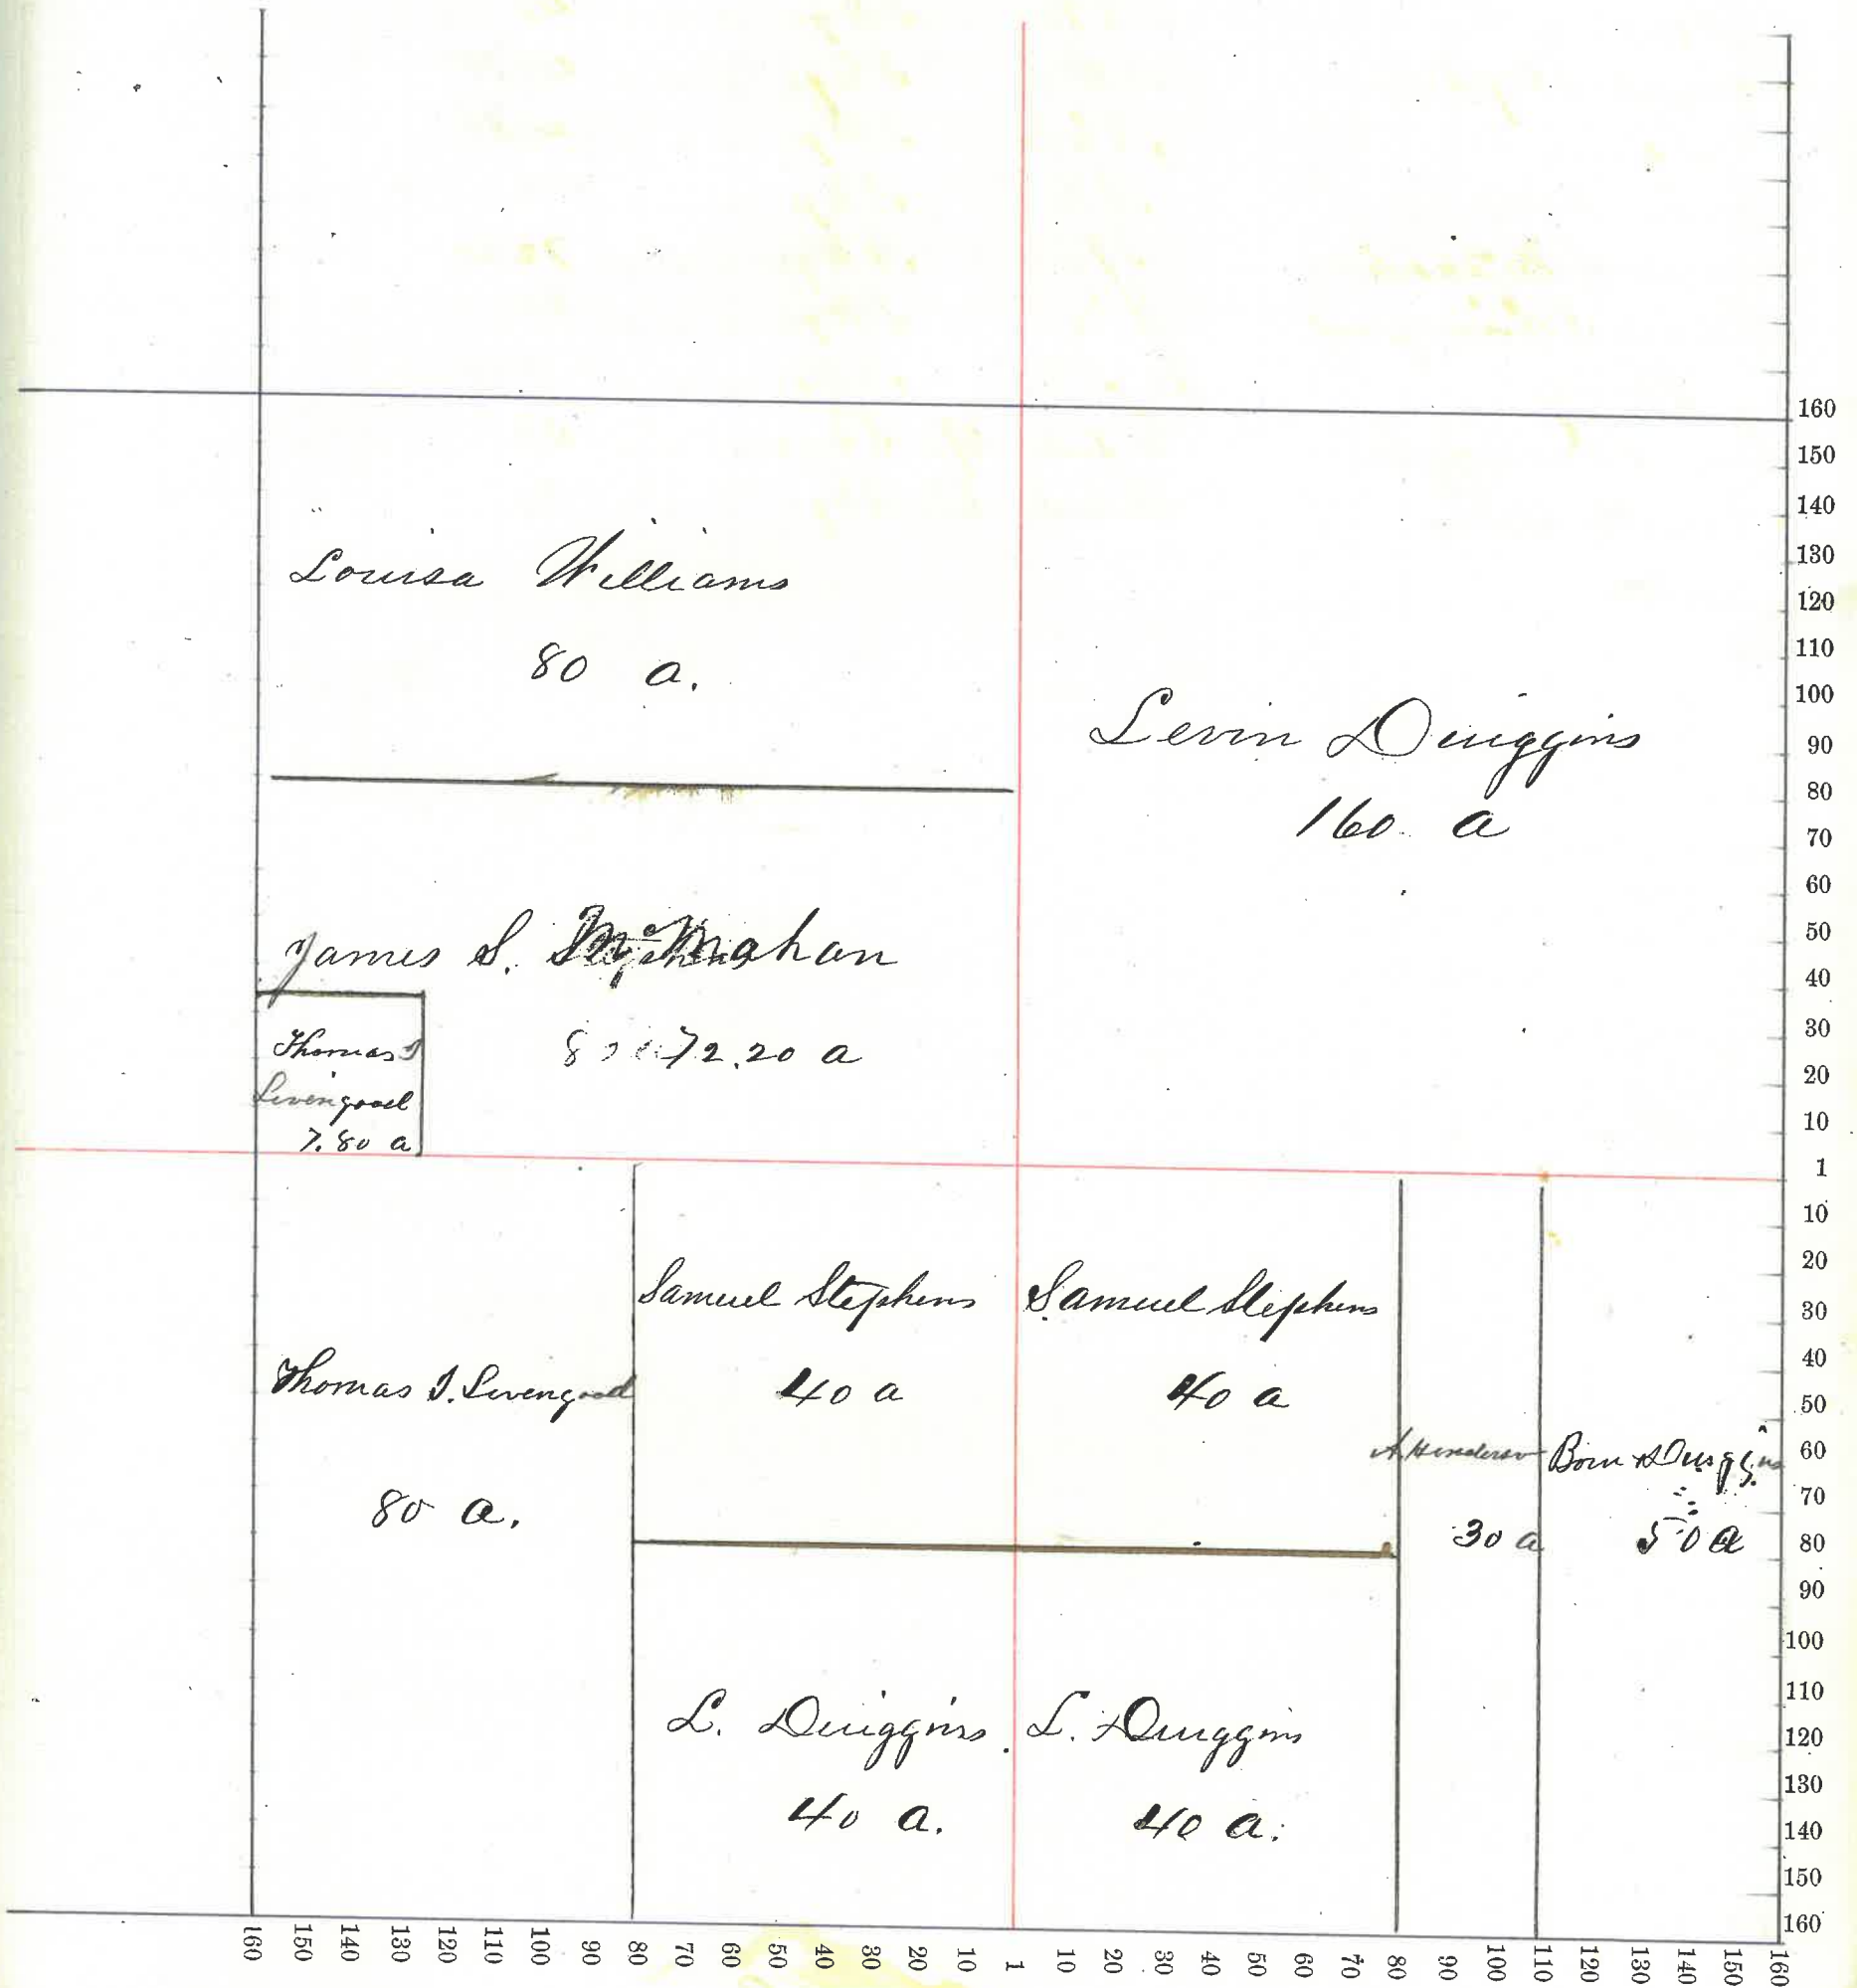 Louisa Williams
80 a.
Levin Duiggins
160 a
James S. McMahan
72.20 a
Thomas
Livengood
7.80 a
Samuel Stephens
40 a
Samuel Stephens
40 a
Thomas S. Livengood
80 a.
A Henderson
30 a
Duiggins
50 a
L. Duiggins
40 a.
L. Duiggins
40 a.
160
150
140
130
120
110
100
90
80
70
60
50
40
30
20
10
1
10
20
30
40
50
60
70
80
90
100
110
120
130
140
150
160
160 150 140 130 120 110 100 90 80 70 60 50 40 30 20 10 1 10 20 30 40 50 60 70 80 90 100 110 120 130 140 150 160